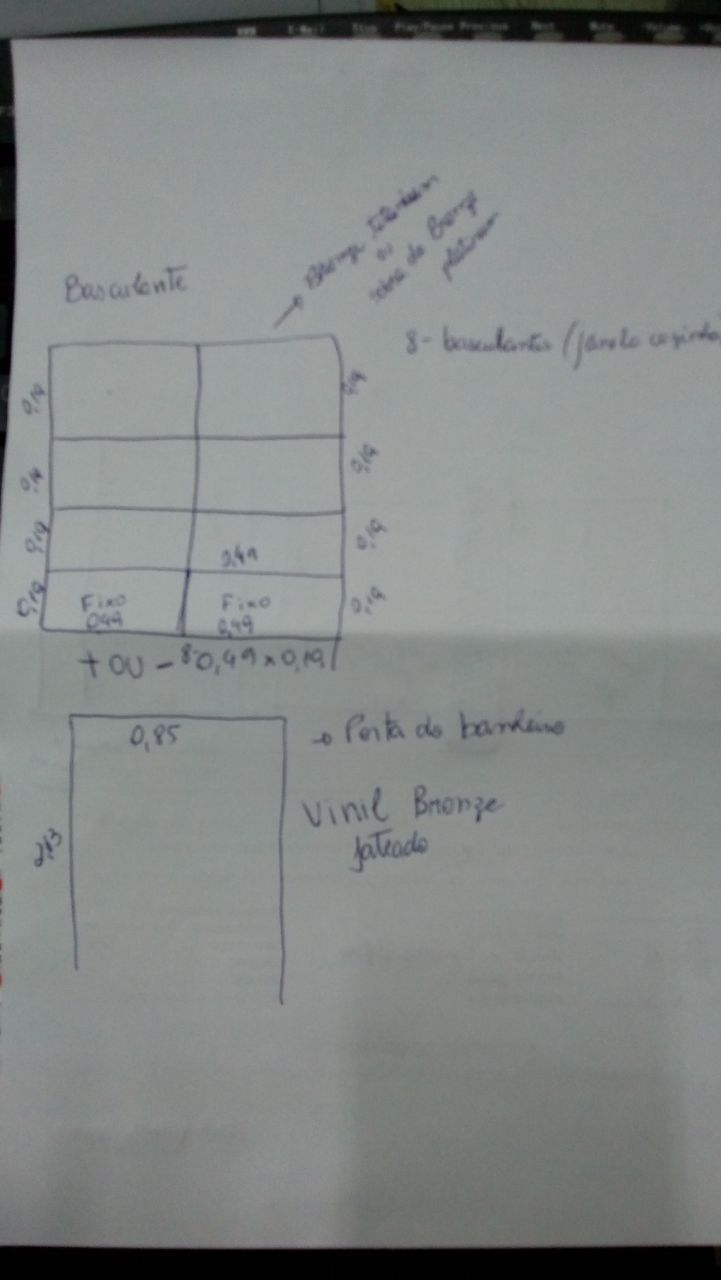 Bronze
ou
Bronze
Basculante
8- basculantes (janela cozinha
0,19
0,19
0,19
0,19
0,19
0,19
0,49
0,19
0,19
Fixo
Fixo
0,49
0,49
+ ou - 8 0,49 x 0,19
0,85
Porta do banheiro
Vinil Bronze
jateado